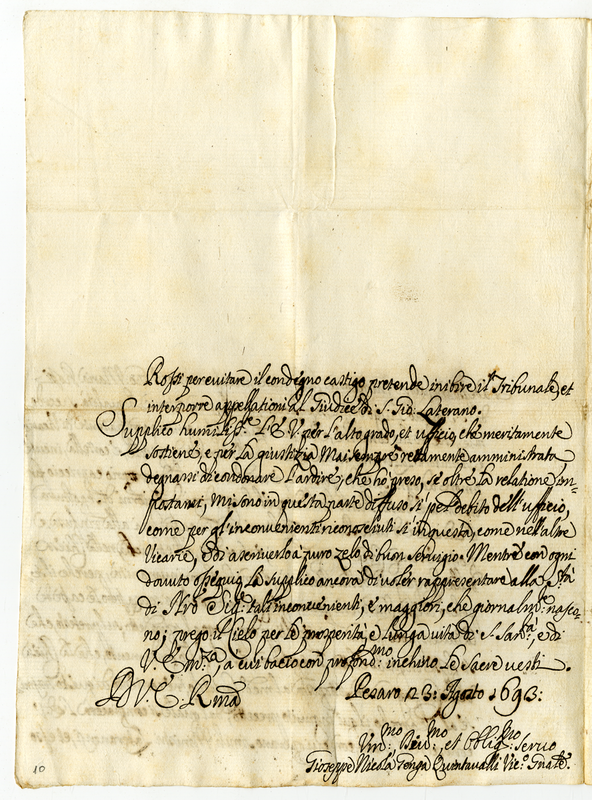 Rossi per evitare il condegno castigo pretende inibire il Tribunale, et
interporre appellationi al Giudice di S. Gio: Laterano.
Supplico humiliss:e L'E.V. per l'alto grado, et ufficio, che meritamente
sostiene, e per la giustitia Mai sempre rettamente amministrata
degnarsi di condonare l'ardire, che hò preso, se oltre la relatione
mi sono in questa parte diffuso sì pel debito dell'ufficio,
come per gl'inconvenienti riconosciuti sì in questa, come nell'altre
Vicarie, e di ascriverlo a puro zelo di buon servigio. Mentre con ogni
dovuto ossequio La supplico ancora di voler rappresentare alla S:tà
di N'ro Sig:re tali inconvenienti, e maggiori, che giornalm:te nasco-
no; prego il Cielo per la prosperità, e lunga vita di S. San:tà, e di
V. Em:za, a cui bacio con profond:mo inchino Le Sacre vesti.
D V. E. R'ma Pesaro 23: Agosto 1693:
Um:mo Dev:mo et Oblig:mo servo
Gioseppe Nicola Gonga Quintavalli Vic:o G'nale.
10